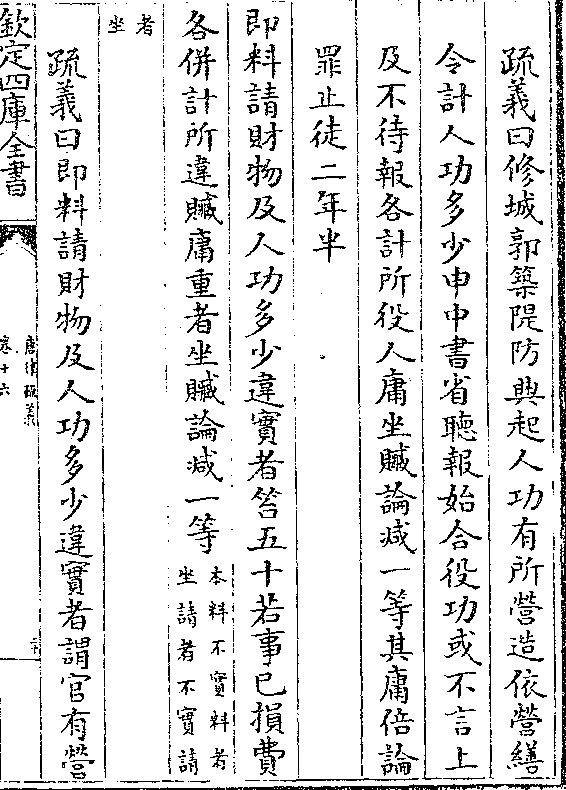 疏義曰修城郭築隄防興起人功有所營造依營繕
令計人功多少申中書省聽報始合役功或不言上
及不待報各計所役人庸坐贓論減一等其庸倍論
罪止徒二年半
即料請財物及人功多少違實者笞五十若事已損費
各併計所違贓庸重者坐贓論减一等本料不實料者
坐請者不實請
者
坐
疏義曰即料請財物及人功多少違實者謂官有營
欽定四庫全書
唐律疏義
卷十六